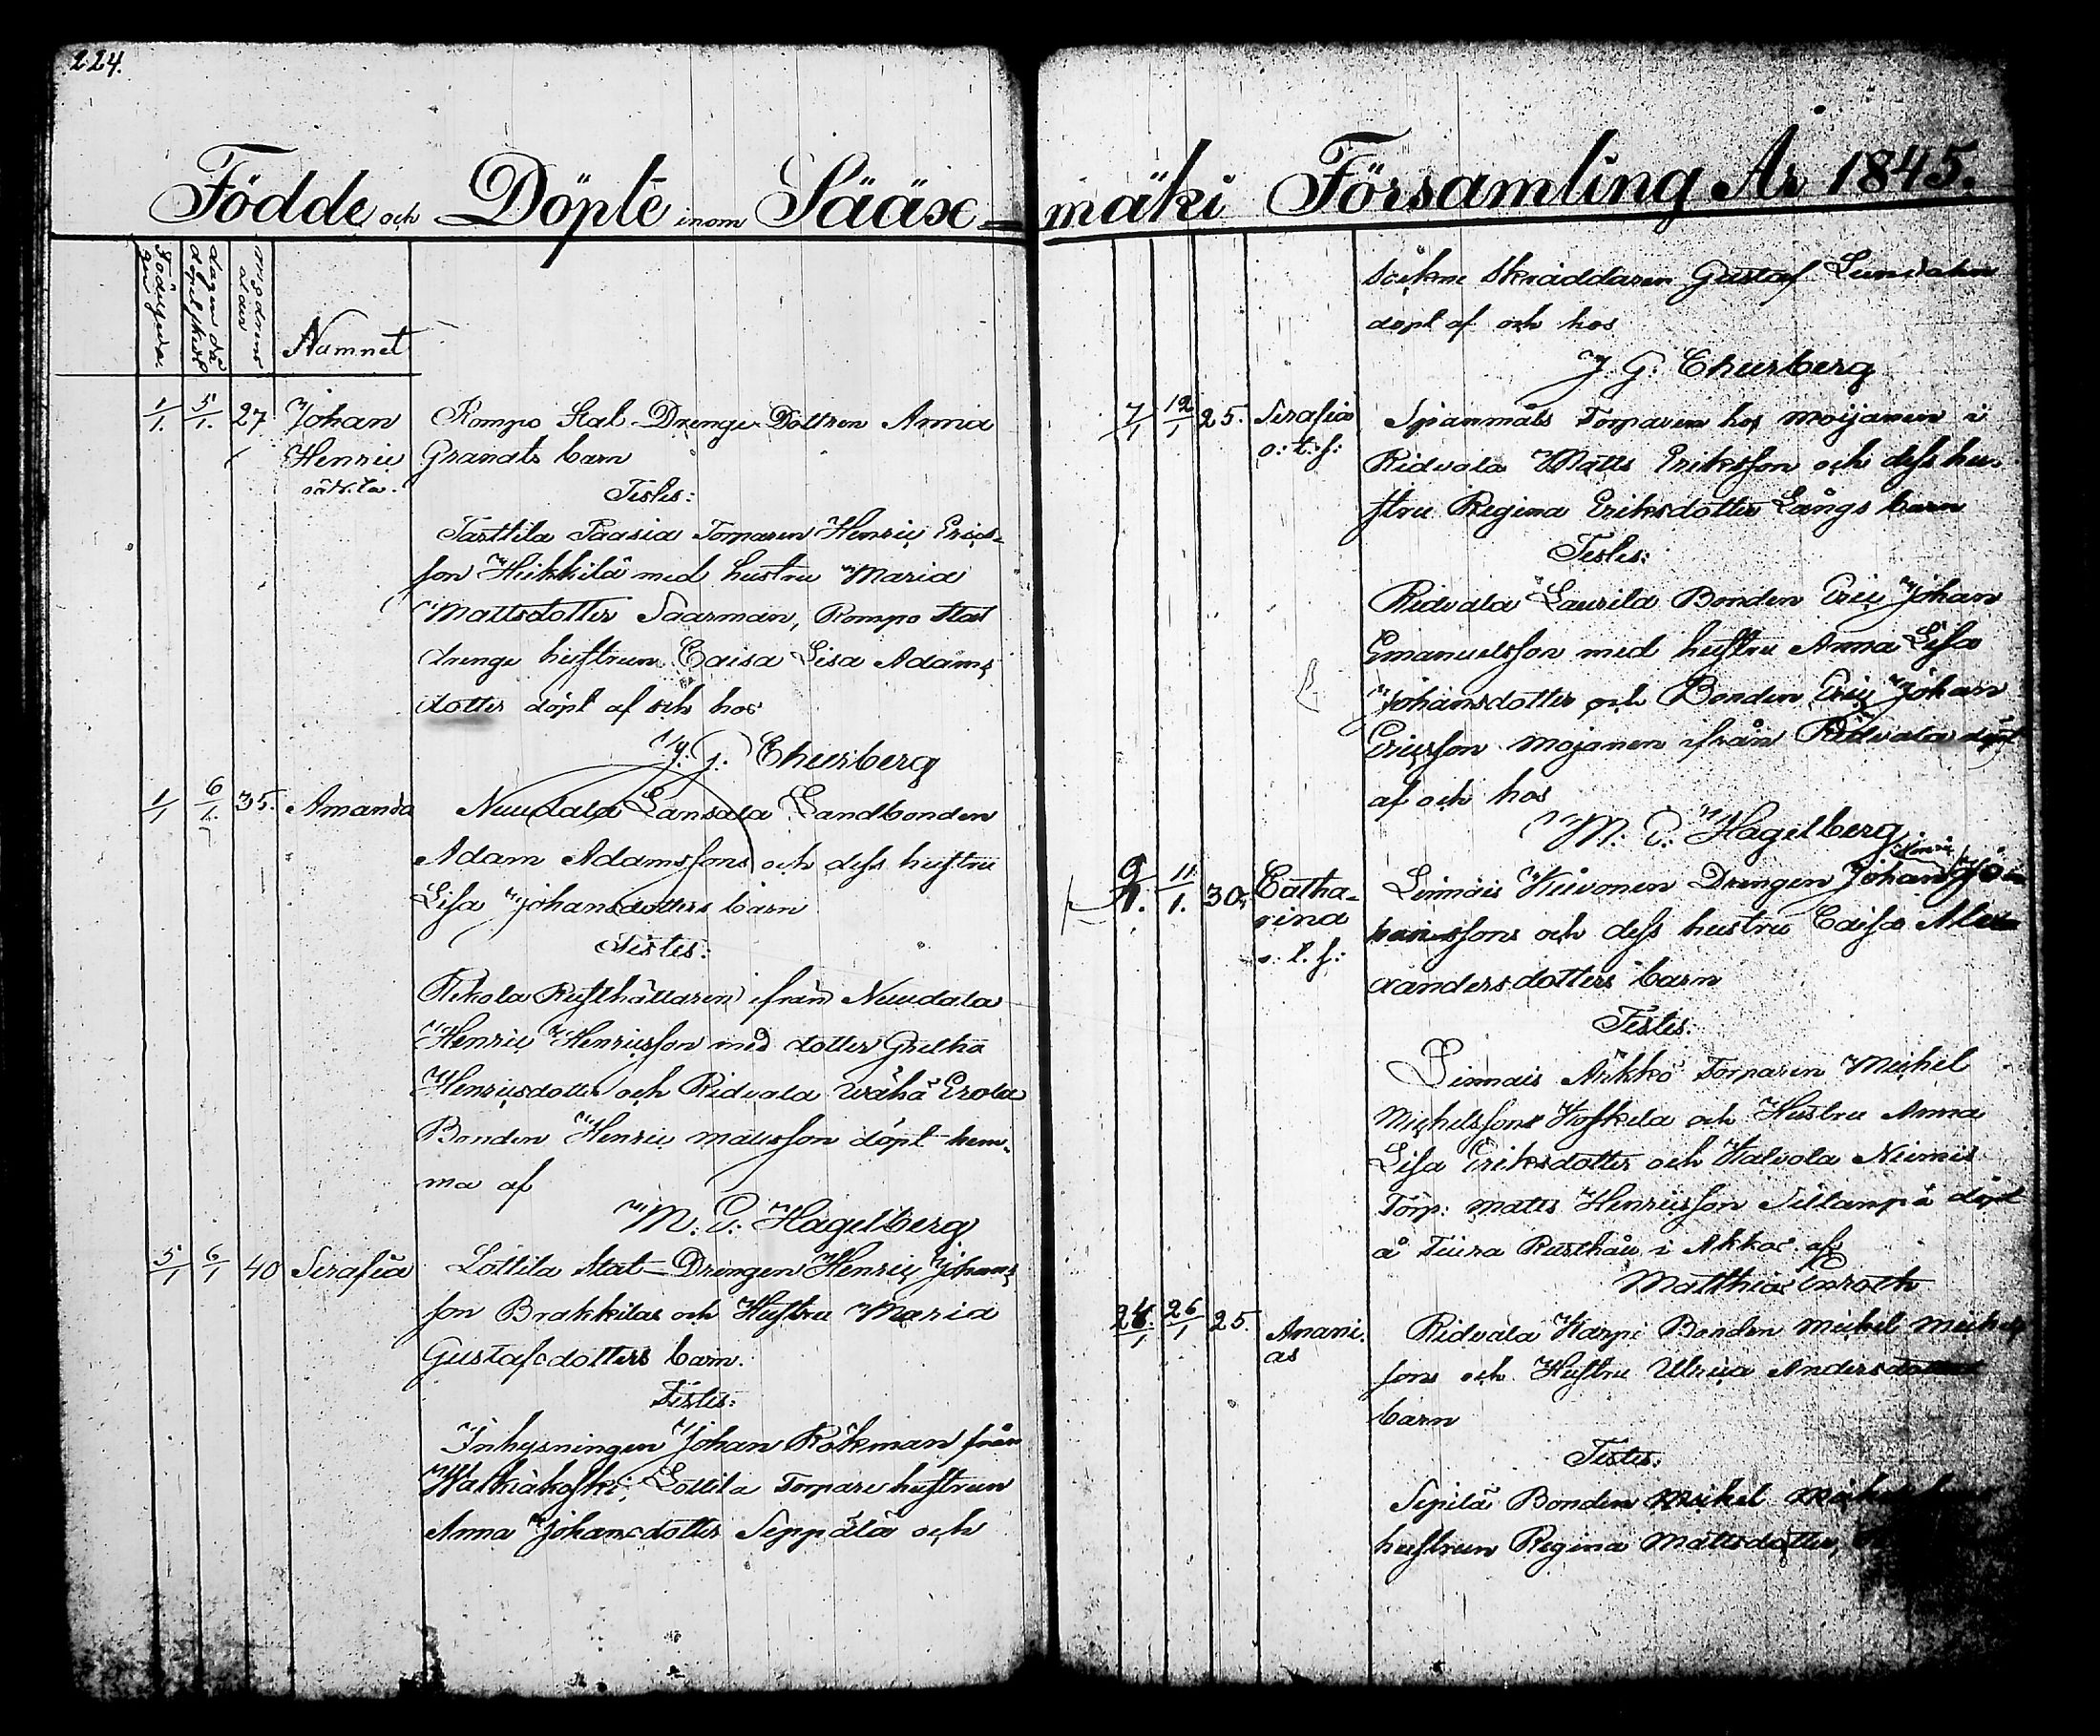 224.
Födde och Döpte inom Sääxmäki Församling År 1845.
Födelseda-
gen
dagen då
döpel skedt
modrens
ålder
Namnet
1/1. 5/1. 27. Johan Rompo Stat-Drenge Dottren Anna
Henric Granats barn
oäkta. Testes:
Tarttila Paasia Torparen Henric Erics-
son Heikkilä med hustru Maria
Mattsdotter Saarman, Rompo Stat
drenge hustrun Caisa Lisa Adams
dotter döpt af och hos
J. G. Churberg
1/1 6/1. 35. Amanda Nuutala Lansala Landbonden
Adam Adamssons och dess hustru
Lisa Johansdotters barn
Testes:
Rekola Rusthållaren ifrån Nuutala
Henric Henricsson med dotter Gretha
Henricsdotter och Ridvala Wähä Erola
Bonden Henric Mattsson döpt hem-
ma af
M. E. Hagelberg
5/1 6/1 40 Serafia Lottila Stat-Drengen Henric Johans
son Brakkilas och Hustru Maria
Gustafsdotters barn.
Testes:
Inhysningen Johan Rökman från
Walkiakoski, Lottila Torpare hustrun
Anna Johansdotter Seppälä och
Sockne Skräddaren Gustaf Lundahn
döpt af och hos
J. G. Churberg
7/1 12/1 25. Serafia Spanmåls Torparen hos Moijanen i
o: t: f: Ridvala Matts Eriksson och dess hu-
stru Regina Eriksdotter Långs barn
Testes:
Ridvala Laurila Bonden Eric Johan
Emanuelsson med hustru Anna Lisa
Johansdotter och Bonden Eric Johan
Ericsson Mojanen ifrån Ridvala döpt
af och hos
M. E. Hagelberg
9/1. 11/1. 30. Catha- Linnais Kuivonen Drengen Johan Henric Jo-
rina hanssons och dess hustru Caisa Alex-
o: t. f: xandersdotters barn
Testes.
Linnais Akko Torparen Michel
Michelsson Koskela och Hustru Anna
Lisa Eriksdotter och Kalvola Niemis
Torp: Matts Henricsson Sillanpä döpt
å Tiura Rusthåll i Akkas af
Matthias Enroth
24/1 26/1 25. Anani- Ridvala Karpi Bonden Michel Michels
as sons och Hustru Ulrica Andersdotters
barn
Testes.
Sepilä Bonden Mikel
hustrun Regina Mattsdotter,